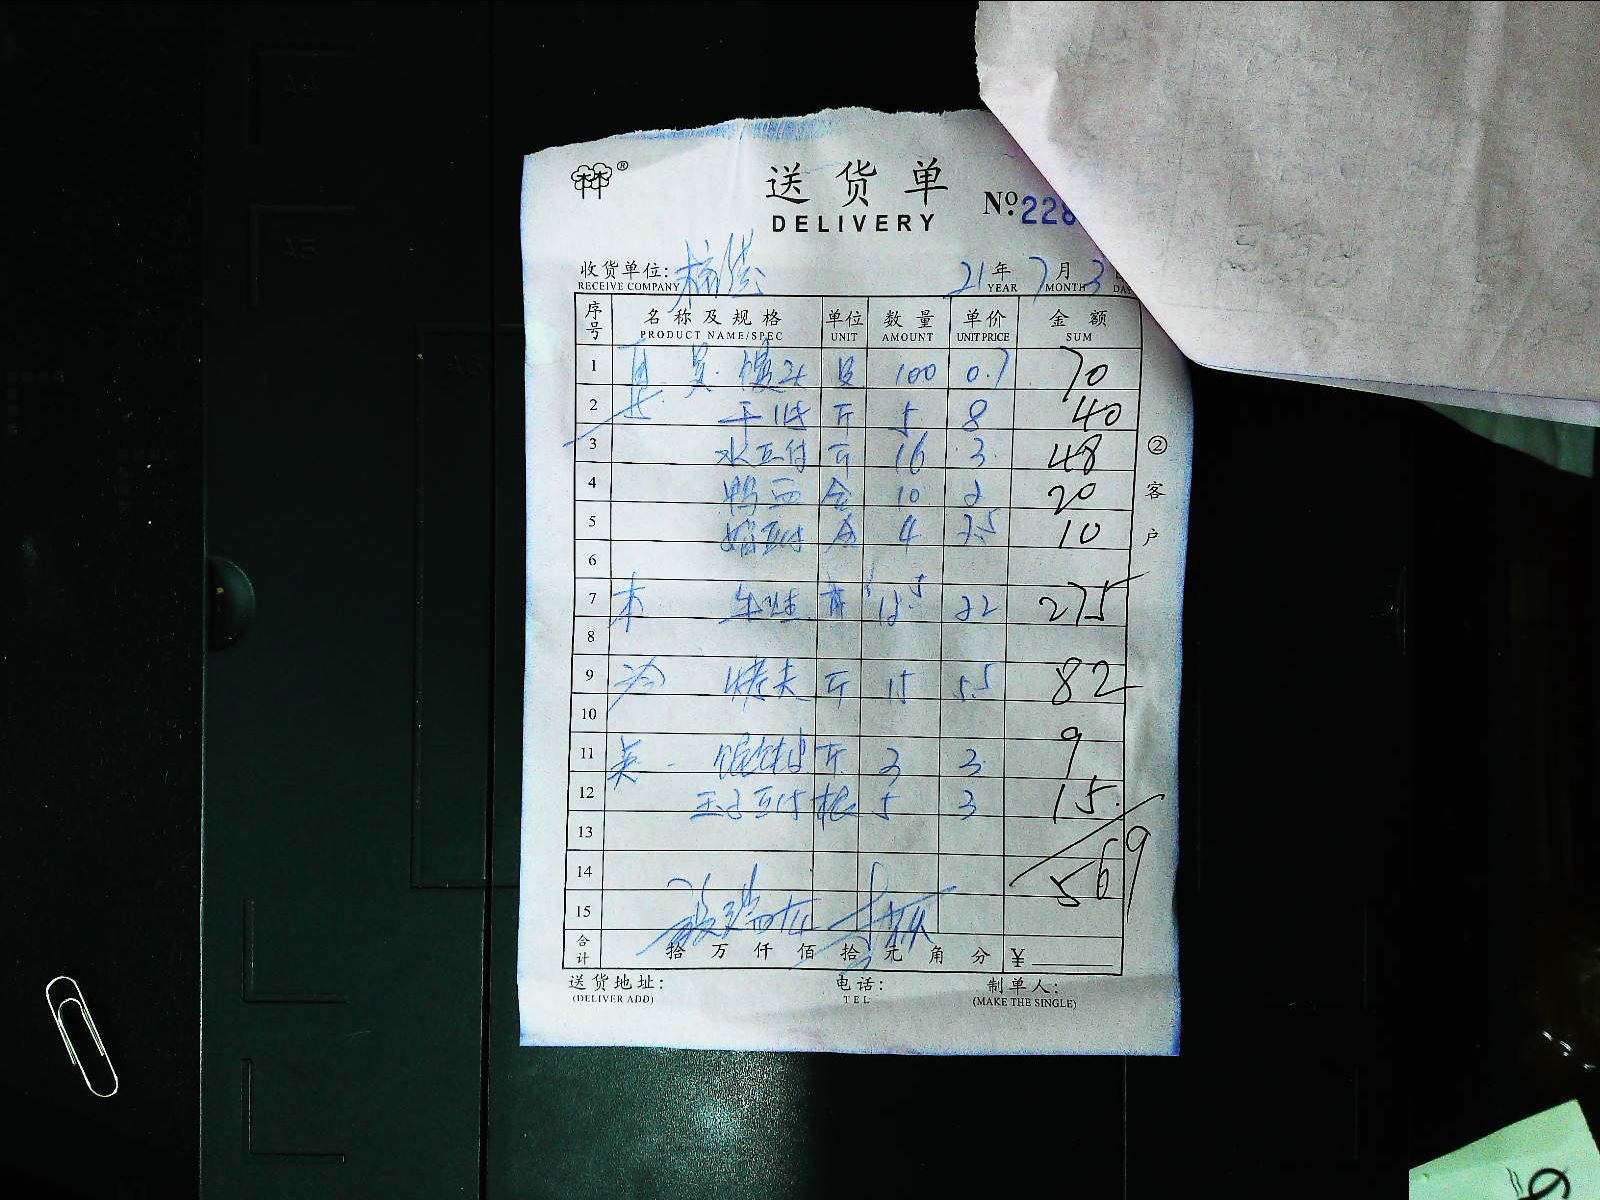 林 ®
送货单
DELIVERY
No. 228
收货单位:
RECEIVE COMPANY
21年 7月 3
YEAR MONTH DA
序号 名称及规格 单位 数量 单价 金额
PRODUCT NAME/SPEC UNIT AMOUNT UNIT PRICE SUM
1 馒头 100 0.7 70
2 斤 5 8 40
3 水豆付 斤 16 3 48
4 鸭血 合 10 2 20
5 4 2.5 10
6
7 12.5 22 275
8
9 烤夫 斤 15 5.5 82
10
11 斤 3 3 9
12 玉子豆付 根 5 3 15
13
14 569
15
合计 拾 万 仟 佰 拾 元 角 分 ¥
送货地址: 电话: 制单人:
(DELIVER ADD) TEL (MAKE THE SINGLE)
②客户